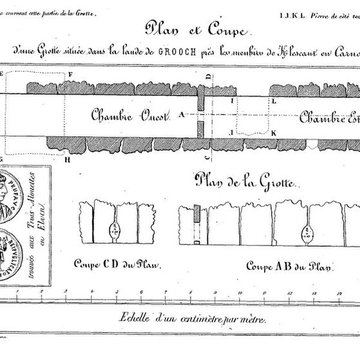 couvrent cette partie de la Grotte.
I.J.K.L. Pierre de côté
Plan et Coupe
d'une Grotte située dans la lande de GROOCH près les menhirs de Klescant en Carn
E F D
I L
Chambre Ouest
A
Chambre Est
J K
G H C
Plan de la Grotte.
trouvée aux Trois Alouettes
en Elven.
Coupe CD du Plan.
Coupe AB du Plan.
1 2 3 4 5 6 7 8 9 10 11 12 13 14
Echelle d'un centimètre par mètre.